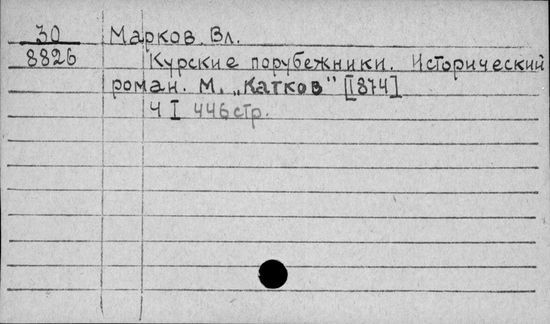 30 Марков, Вл.
8826 Курские порубежники. Исторический
роман. М. „Катков" [1874]
Ч I 446 стр.